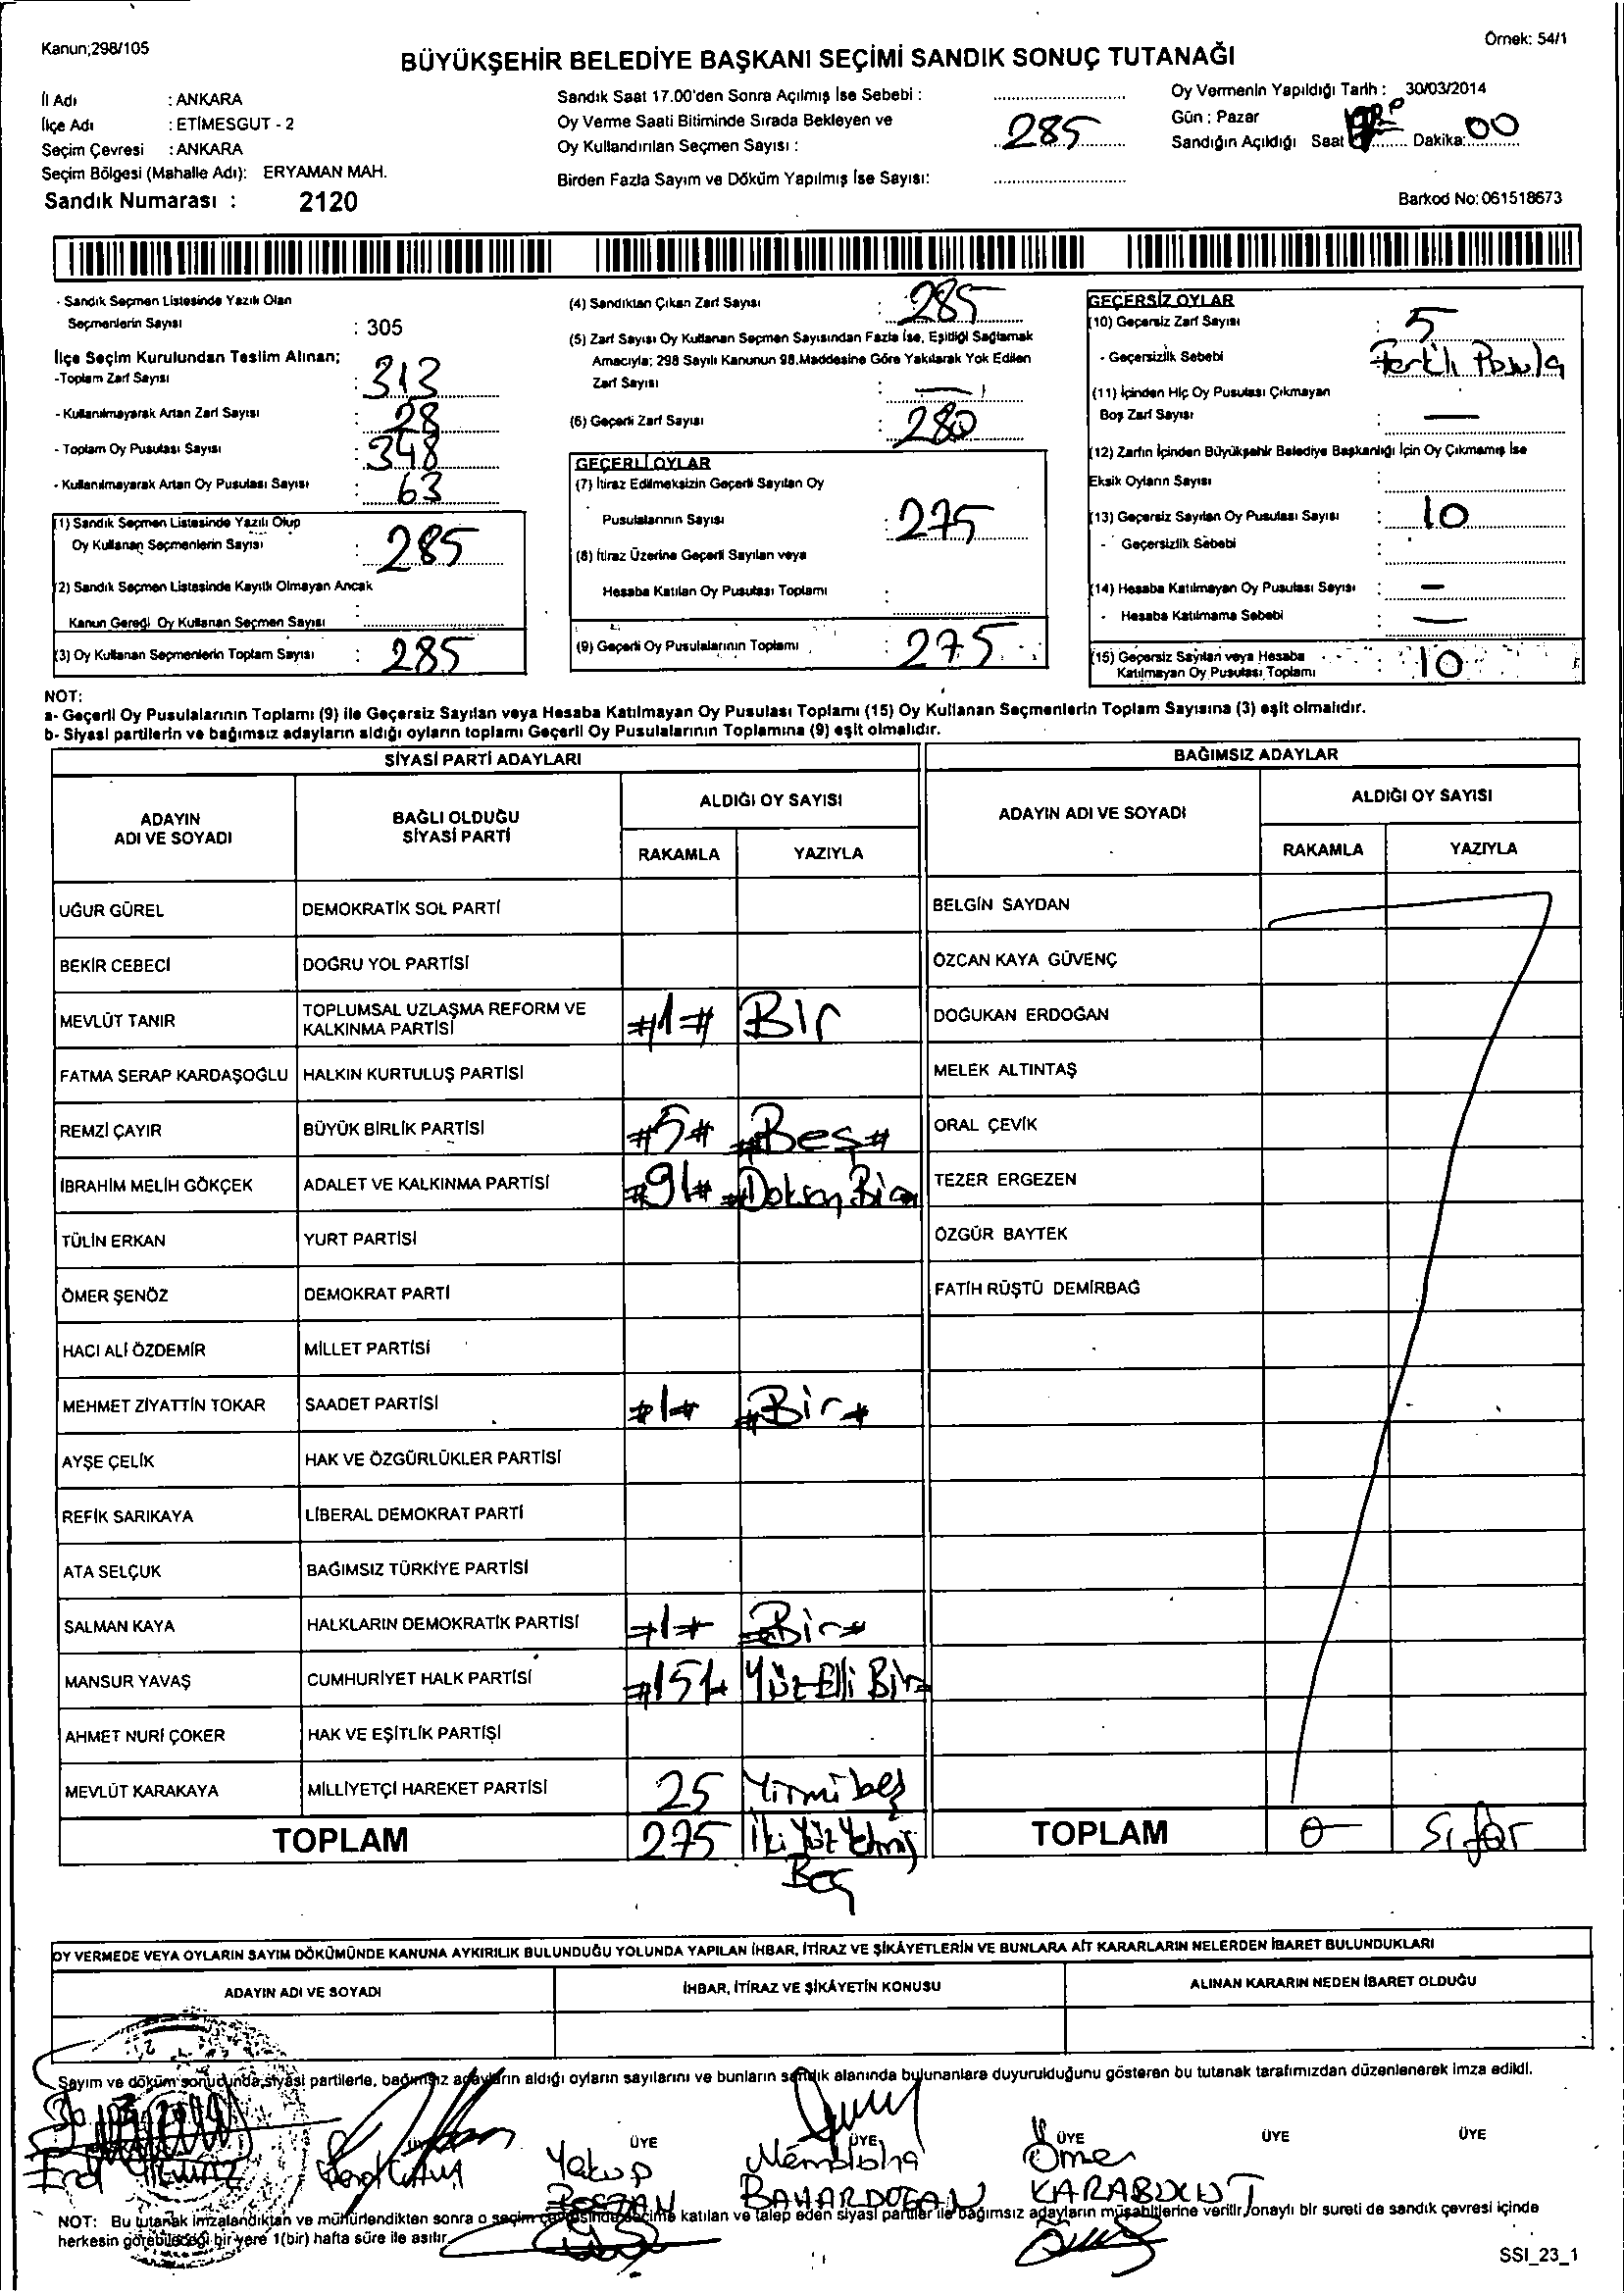 Kanun;298/105
Örnek: 54/1
BÜYÜKŞEHİR BELEDİYE BAŞKANI SEÇİMİ SANDIK SONUÇ TUTANAĞI
İl Adı : ANKARA
İlçe Adı : ETİMESGUT - 2
Seçim Çevresi : ANKARA
Seçim Bölgesi (Mahalle Adı): ERYAMAN MAH.
Sandık Numarası : 2120
Sandık Saat 17.00'den Sonra Açılmış İse Sebebi :
Oy Verme Saati Bitiminde Sırada Bekleyen ve
Oy Kullandırılan Seçmen Sayısı : 285
Birden Fazla Sayım ve Döküm Yapılmış İse Sayısı:
Oy Vermenin Yapıldığı Tarih : 30/03/2014
Gün : Pazar
Sandığın Açıldığı Saat Dakika: 00
Barkod No: 061518673
- Sandık Seçmen Listesinde Yazılı Olan
Seçmenlerin Sayısı : 305
İlçe Seçim Kurulundan Teslim Alınan;
-Toplam Zarf Sayısı : 313
- Kullanılmayarak Artan Zarf Sayısı : 28
- Toplam Oy Pusulası Sayısı : 348
- Kullanılmayarak Artan Oy Pusulası Sayısı : 63
(1) Sandık Seçmen Listesinde Yazılı Olup
Oy Kullanan Seçmenlerin Sayısı : 285
(2) Sandık Seçmen Listesinde Kayıtlı Olmayan Ancak
Kanun Gereği Oy Kullanan Seçmen Sayısı :
(3) Oy Kullanan Seçmenlerin Toplam Sayısı : 285
(4) Sandıktan Çıkan Zarf Sayısı : 285
(5) Zarf Sayısı Oy Kullanan Seçmen Sayısından Fazla İse, Eşitliği Sağlamak
Amacıyla; 298 Sayılı Kanunun 98.Maddesine Göre Yakılarak Yok Edilen
Zarf Sayısı : —
(6) Geçerli Zarf Sayısı : 280
GEÇERLİ OYLAR
(7) İtiraz Edilmeksizin Geçerli Sayılan Oy
Pusulalarının Sayısı : 275
(8) İtiraz Üzerine Geçerli Sayılan veya
Hesaba Katılan Oy Pusulası Toplamı :
(9) Geçerli Oy Pusulalarının Toplamı : 275
GEÇERSİZ OYLAR
(10) Geçersiz Zarf Sayısı : 5
- Geçersizlik Sebebi
(11) İçinden Hiç Oy Pusulası Çıkmayan
Boş Zarf Sayısı : —
(12) Zarfın İçinden Büyükşehir Belediye Başkanlığı İçin Oy Çıkmamış İse
Eksik Oyların Sayısı :
(13) Geçersiz Sayılan Oy Pusulası Sayısı : 10
- Geçersizlik Sebebi :
(14) Hesaba Katılmayan Oy Pusulası Sayısı : —
- Hesaba Katılmama Sebebi : —
(15) Geçersiz Sayılan veya Hesaba
Katılmayan Oy Pusulası Toplamı : 10
NOT:
a- Geçerli Oy Pusulalarının Toplamı (9) ile Geçersiz Sayılan veya Hesaba Katılmayan Oy Pusulası Toplamı (15) Oy Kullanan Seçmenlerin Toplam Sayısına (3) eşit olmalıdır.
b- Siyasi partilerin ve bağımsız adayların aldığı oyların toplamı Geçerli Oy Pusulalarının Toplamına (9) eşit olmalıdır.
SİYASİ PARTİ ADAYLARI
ADAYIN ADI VE SOYADI
BAĞLI OLDUĞU SİYASİ PARTİ
ALDIĞI OY SAYISI
RAKAMLA YAZIYLA
UĞUR GÜREL DEMOKRATİK SOL PARTİ
BEKİR CEBECİ DOĞRU YOL PARTİSİ
MEVLÜT TANIR TOPLUMSAL UZLAŞMA REFORM VE
KALKINMA PARTİSİ #1# Bir
FATMA SERAP KARDAŞOĞLU HALKIN KURTULUŞ PARTİSİ
REMZİ ÇAYIR BÜYÜK BİRLİK PARTİSİ #5# #Beş#
İBRAHİM MELİH GÖKÇEK ADALET VE KALKINMA PARTİSİ #91# #Doksan Bir#
TÜLİN ERKAN YURT PARTİSİ
ÖMER ŞENÖZ DEMOKRAT PARTİ
HACI ALİ ÖZDEMİR MİLLET PARTİSİ
MEHMET ZİYATTİN TOKAR SAADET PARTİSİ #1# #Bir#
AYŞE ÇELİK HAK VE ÖZGÜRLÜKLER PARTİSİ
REFİK SARIKAYA LİBERAL DEMOKRAT PARTİ
ATA SELÇUK BAĞIMSIZ TÜRKİYE PARTİSİ
SALMAN KAYA HALKLARIN DEMOKRATİK PARTİSİ #1# #Bir#
MANSUR YAVAŞ CUMHURİYET HALK PARTİSİ #151# Yüz Elli Bir#
AHMET NURİ ÇOKER HAK VE EŞİTLİK PARTİSİ
MEVLÜT KARAKAYA MİLLİYETÇİ HAREKET PARTİSİ 25 Yirmi beş
TOPLAM 275 İki Yüz Yetmiş
Beş
BAĞIMSIZ ADAYLAR
ADAYIN ADI VE SOYADI
ALDIĞI OY SAYISI
RAKAMLA YAZIYLA
BELGİN SAYDAN
ÖZCAN KAYA GÜVENÇ
DOĞUKAN ERDOĞAN
MELEK ALTINTAŞ
ORAL ÇEVİK
TEZER ERGEZEN
ÖZGÜR BAYTEK
FATİH RÜŞTÜ DEMİRBAĞ
TOPLAM 0 Sıfır
OY VERMEDE VEYA OYLARIN SAYIM DÖKÜMÜNDE KANUNA AYKIRILIK BULUNDUĞU YOLUNDA YAPILAN İHBAR, İTİRAZ VE ŞİKÂYETLERİN VE BUNLARA AİT KARARLARIN NELERDEN İBARET BULUNDUKLARI
ADAYIN ADI VE SOYADI İHBAR, İTİRAZ VE ŞİKÂYETİN KONUSU ALINAN KARARIN NEDEN İBARET OLDUĞU
Sayım ve döküm sonucunda,siyasi partilerle, bağımsız adayların aldığı oyların sayılarını ve bunların sandık alanında bulunanlara duyurulduğunu gösteren bu tutanak tarafımızdan düzenlenerek imza edildi.
ÜYE ÜYE ÜYE ÜYE ÜYE
Yakup
BAHARDOĞAN
Ömer
KARABULUT
NOT: Bu tutanak imzalandıktan ve mühürlendikten sonra o seçim çevresinde seçime katılan ve talep eden siyasi partiler ile bağımsız adayların müşahitlerine verilir,onaylı bir sureti de sandık çevresi içinde
herkesin görebileceği bir yere 1(bir) hafta süre ile asılır.
SSI_23_1